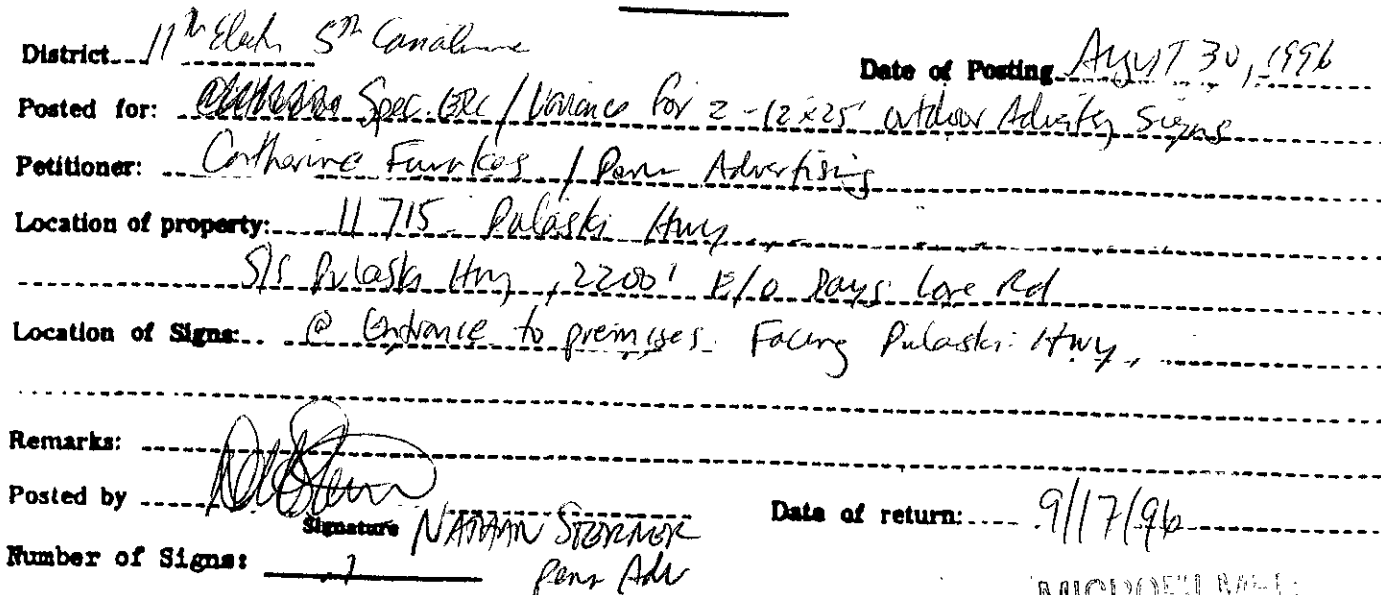 District 11th Elect 5th
Date of Posting August 30, 1996
Posted for: Spec. Exc / Variance for 2-12x25' outdoor Advertising Signs
Petitioner: Catherine / Penn Advertising
Location of property: 11715 Pulaski Hwy
S/S Pulaski Hwy, 2200' E/o Days Cove Rd
Location of Signs: @ Entrance to premises Facing Pulaski Hwy,
Remarks:
Posted by
Date of return: 9/17/96
Signature NATHAN STERNER
Penn Adv
Number of Signs: 1
MICROFILMED